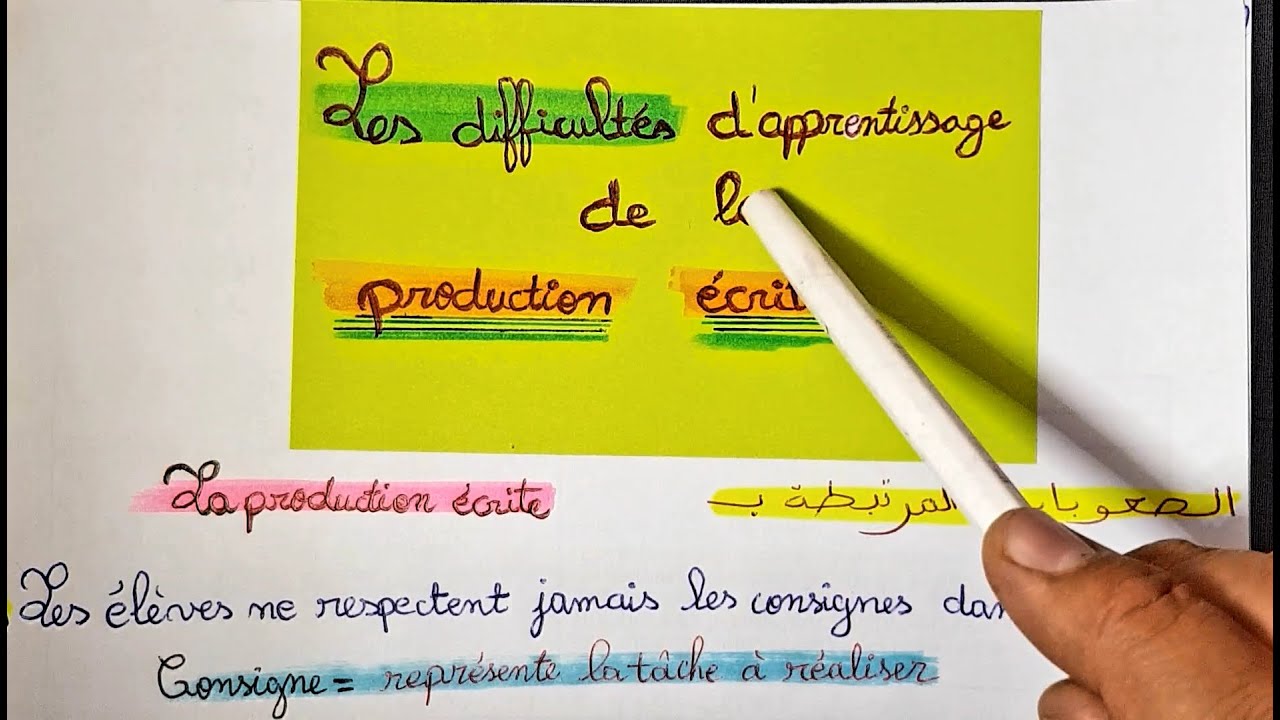 Les difficultés d'apprentissage
de
production écrit
La production écrite المرتبطة ب
Les élèves ne respectent jamais les consignes
Consigne = représente la tâche à réaliser